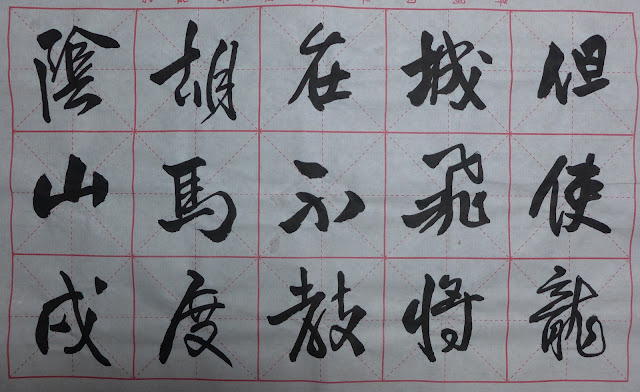 但使龍
城飛將
在不教
胡馬度
陰山戍